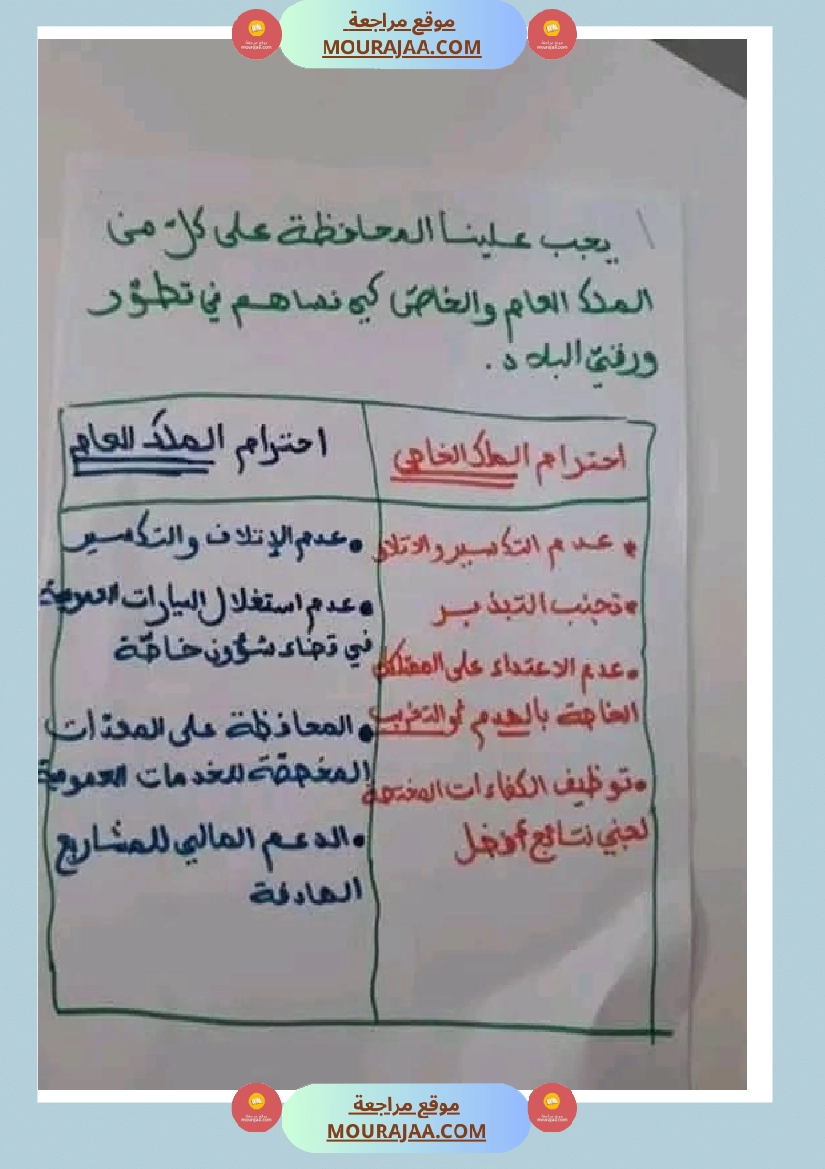 موقع مراجعة
MOURAJAA.COM
يجب علينا المحافظة على كلّ من
الملك العام والخاصّ كي نساهم في تطوّر
ورقيّ البلاد.
احترام الملك الخاص
احترام الملك العام
• عدم التكسير والاتلاف
• تجنب التبذير
• عدم الاعتداء على الممتلكات
الخاصة بالهدم أو التخريب
• توظيف الكفاءات المختصة
لجني نتائج أفضل
• عدم الإتلاف والتكسير
• عدم استغلال السيارات العمومية
في قضاء شؤون خاصّة
• المحافظة على المعدّات
المخصّصة للخدمات العمومية
• الدعم المالي للمشاريع
الهادفة
موقع مراجعة
MOURAJAA.COM